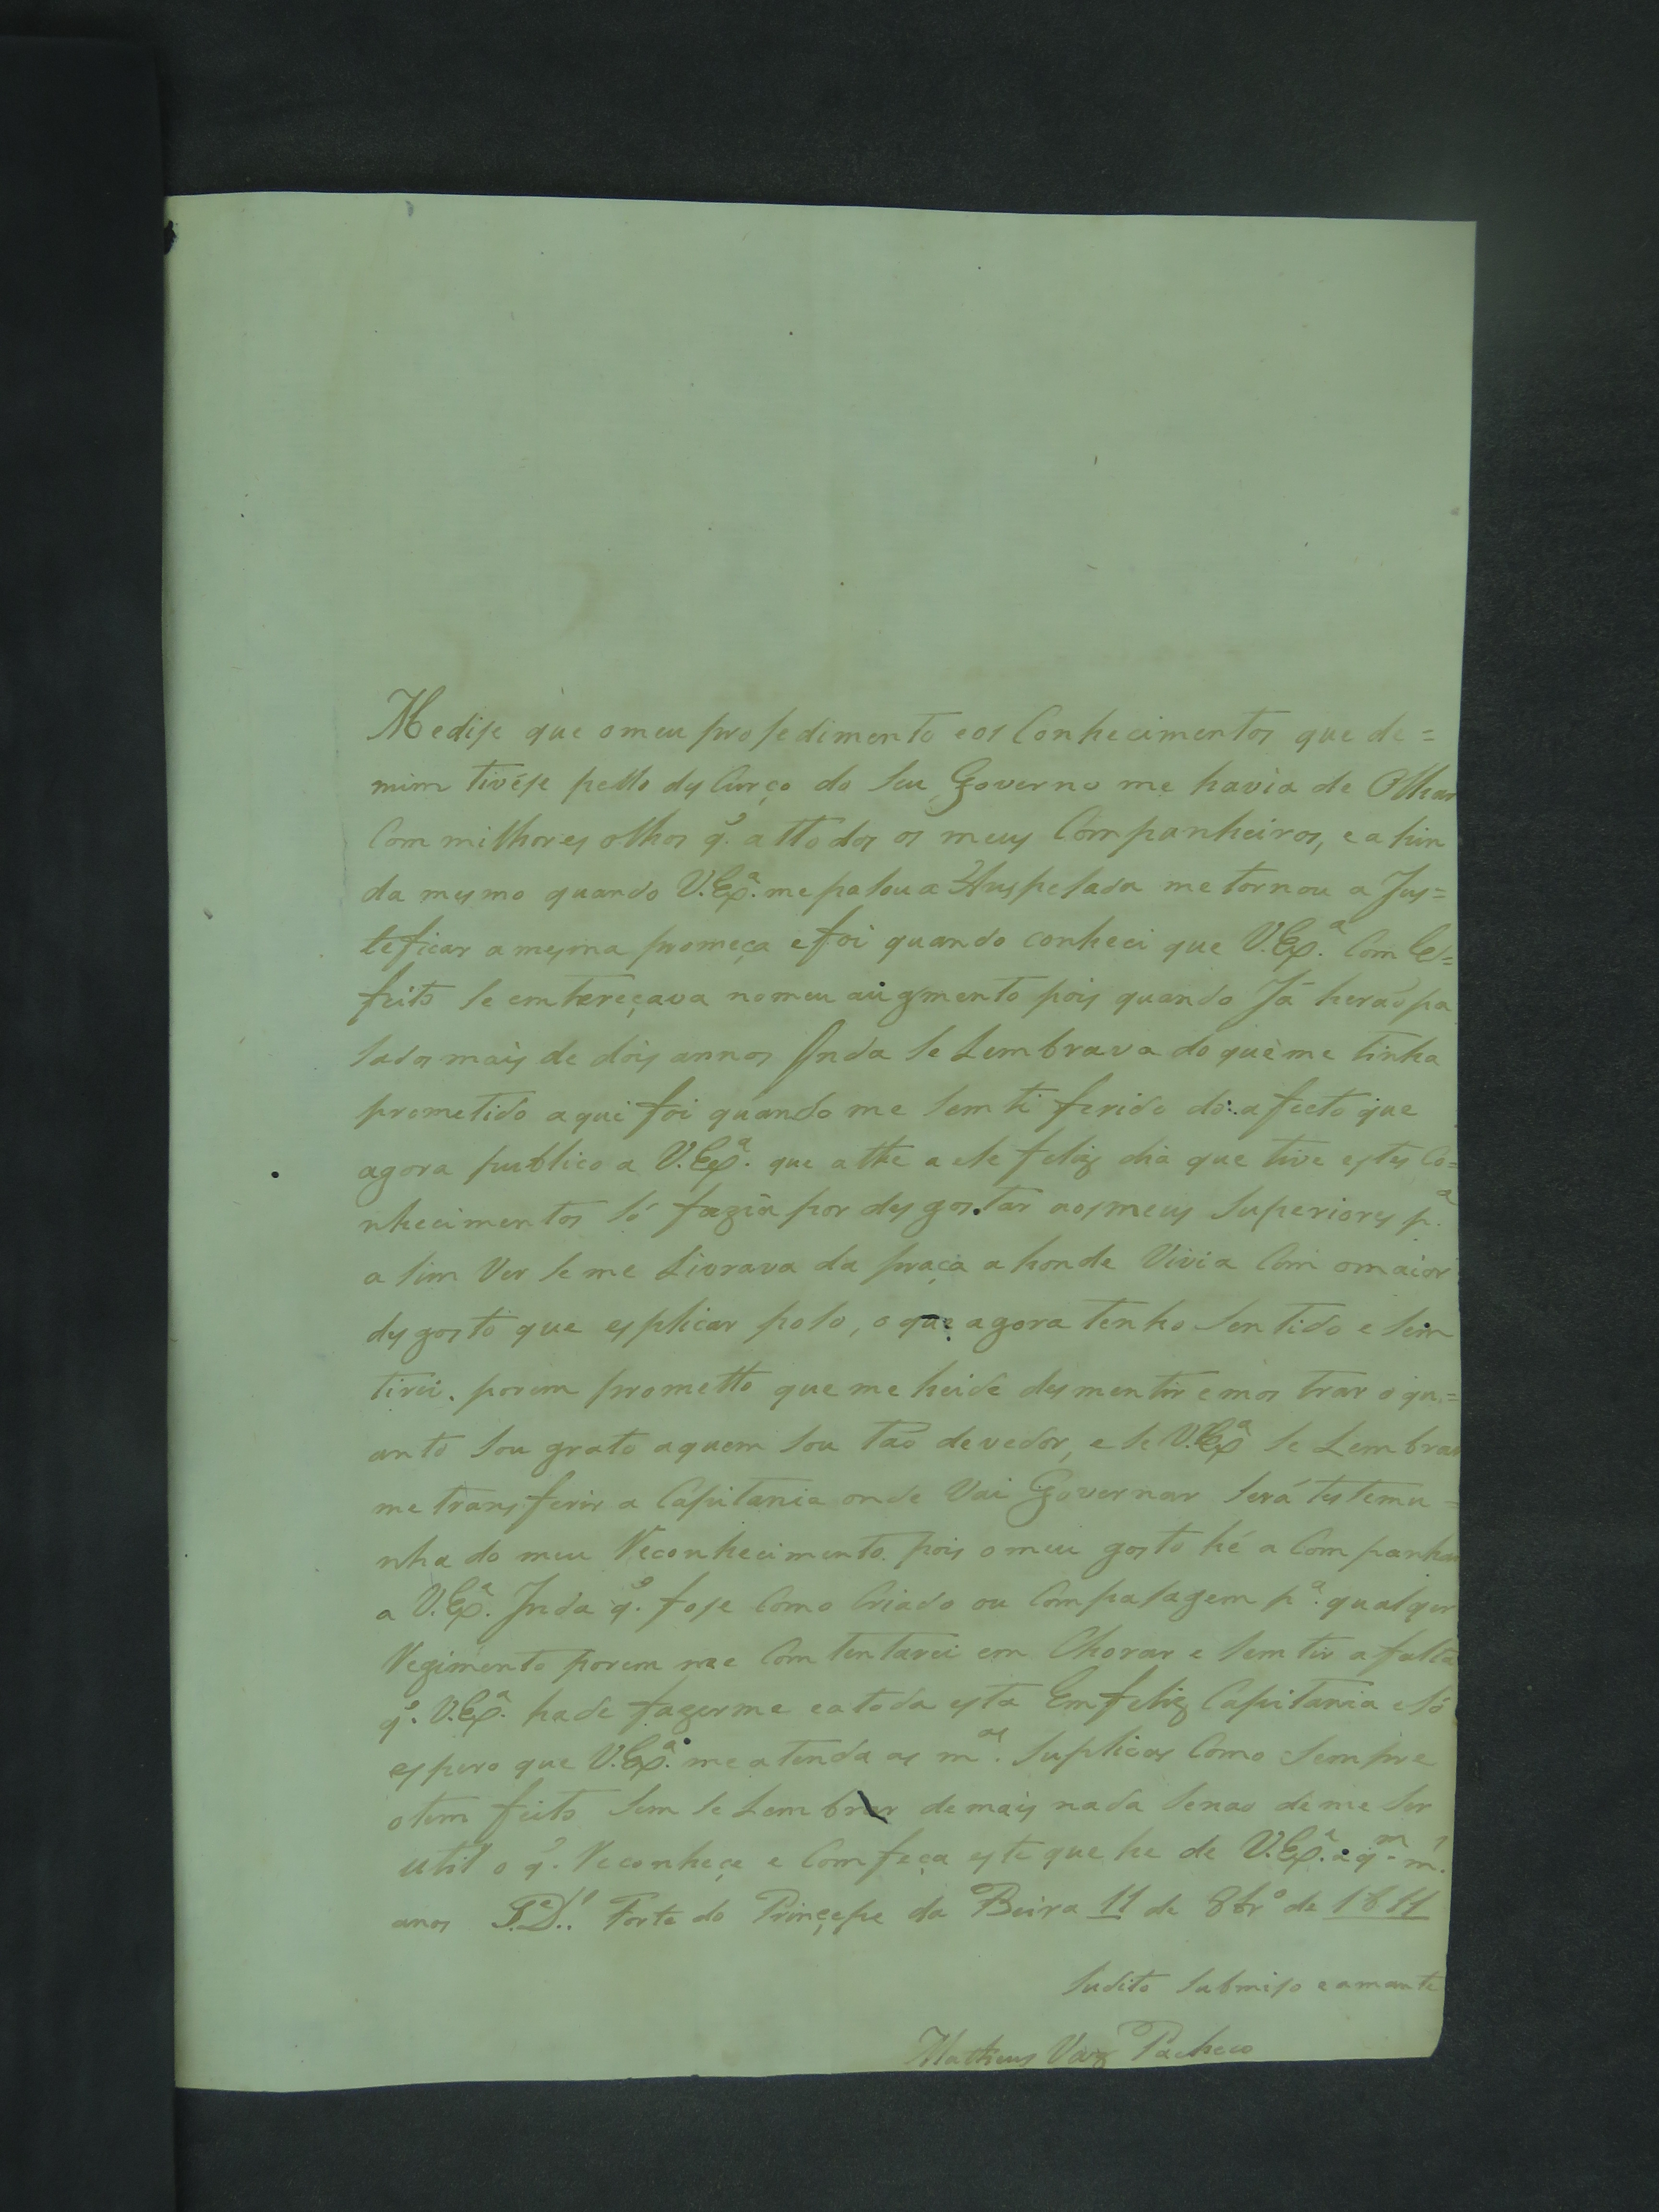 Medise que omeu prosedimento eos Conhecimentos que de=
mim tivése pello dysCurço do seu Governo me havia de Olhar
Com milhores olhos q.e attodos os meus Companheiros, e ahin
da mesmo quando V.Exª. mepasou a Anspesada me tornou a Jus=
teficar amesma promeça efoi quando conheci que V.Exª. Com Ee=
feito se emtereçava nomeu augmento pois quando Já heraõ pa
sados mais de dois annos Inda se Lembrava doque me tinha
prometido aqui foi quando me semti ferido do afecto que
agora publico a V.Exª. que athe aese feliz dia que tive estes Co=
nhecimentos só fazia por desgostar aosmeus Superiores p.ª
asim Ver se me Livrava da praça ahonde Vivia Com omaior
desgosto que esplicar poso, oque agora tenho sentido e sem
tirei. porem prometto que me heide desmentir emostrar oqu=
anto sou grato aquem sou taõ devedor, e se V.Exª se Lembrar
me transferir a Capitania onde Vai Governar será testemu=
nha do meu Reconhecimento. pois omeu gosto hé aCompanhar
a V.Exª. Inda q.e fose Como Criado ou Compasagem pª. qualqer
Regimento porem me Comtentarei em Chorar e semtir a falta
q.e V.Exª. hade fazerme eatoda esta Emfeliz Capitania esó
espero que V.Exª. meatenda as m.as suplicas Como sempre
otem feito sem se Lembrar demais nada senaõ de me ser
util o q.e Reconheçe e Comfeça este que he de V.Exª. a q.m m.s
anos G.e D.s Forte do Prinçepe da Beira 11 de 8br.o de 1811
Sudito Submiso eamante
Matheus Vaz Pacheco